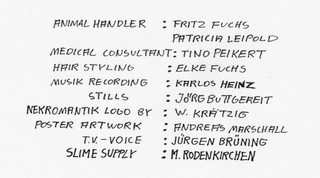 ANIMAL HANDLER : FRITZ FUCHS
PATRICIA LEIPOLD
MEDICAL CONSULTANT : TINO PEIKERT
HAIR STYLING : ELKE FUCHS
MUSIK RECORDING : KARLOS HEINZ
STILLS : JÖRG BUTTGEREIT
NEKROMANTIK LOGO BY : W. KRÄTZIG
POSTER ARTWORK : ANDREAS MARSCHALL
T.V.-VOICE : JÜRGEN BRÜNING
SLIME SUPPLY : M. RODENKIRCHEN